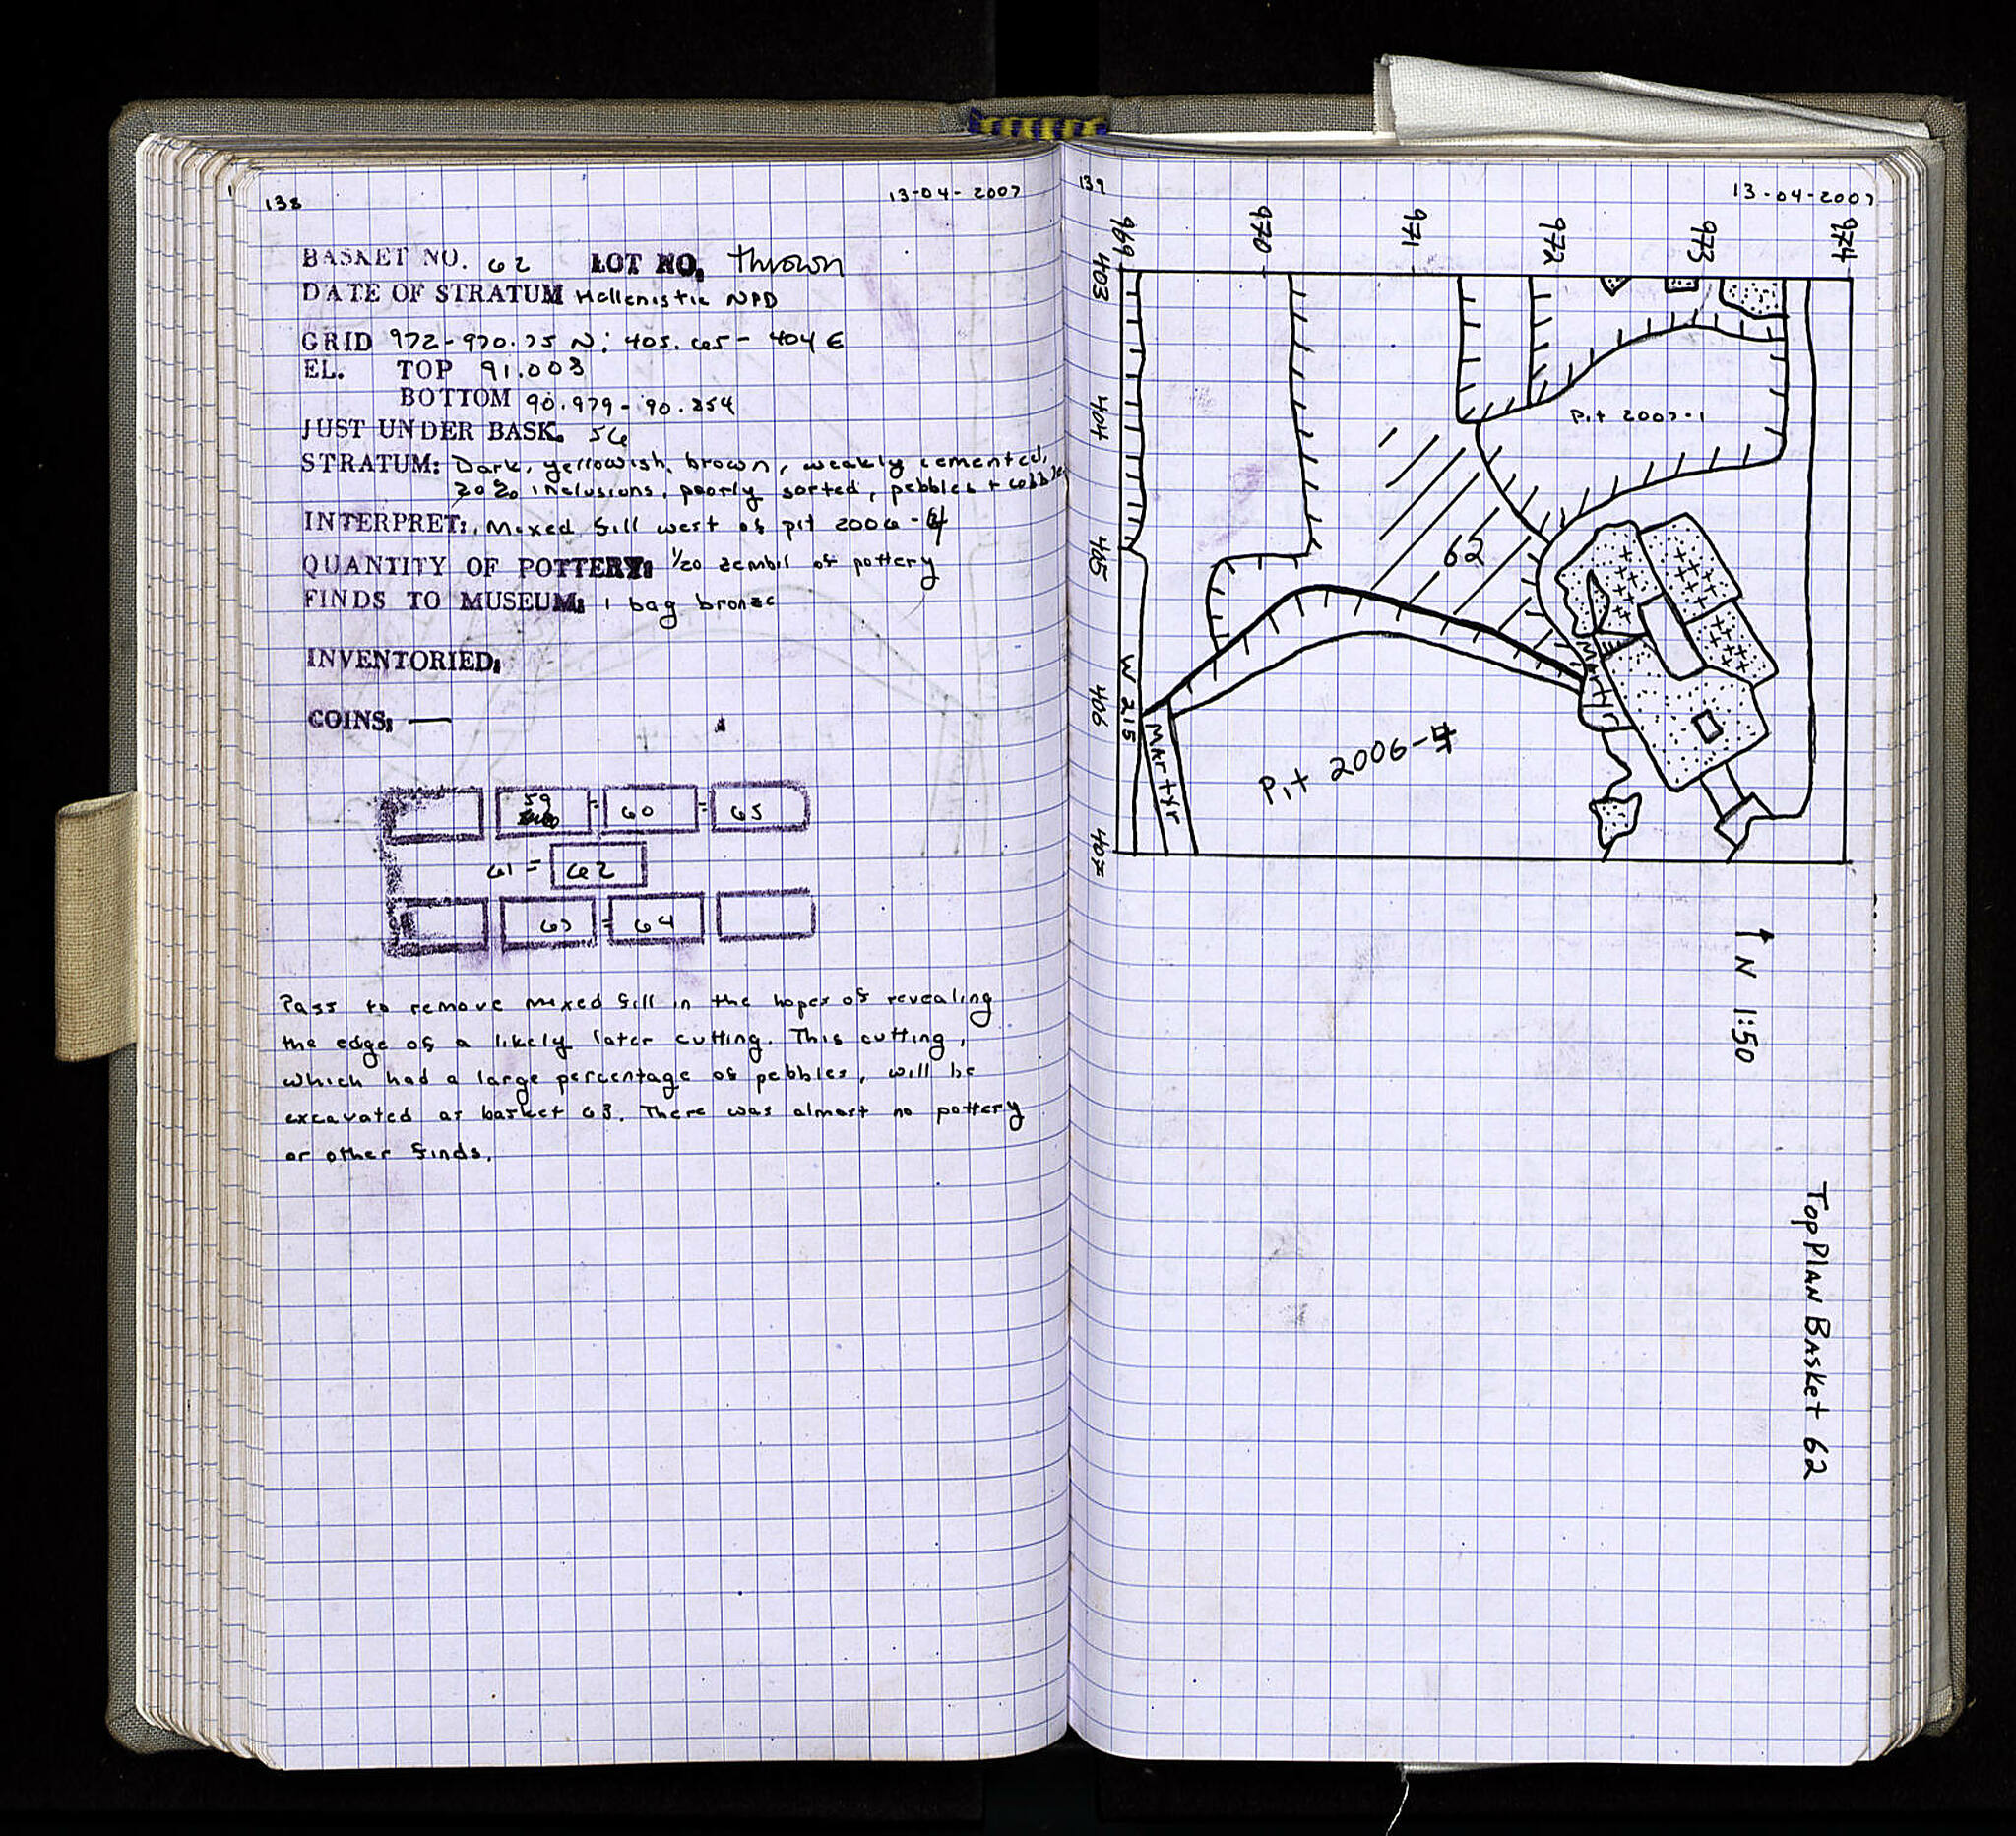 138
13-04-2007
BASKET NO. 62 LOT NO. thrown
DATE OF STRATUM Hellenistic NPD
GRID 972-970.75 N; 405.65 - 404 E
EL. TOP 91.003
BOTTOM 90.979 - 90.854
JUST UNDER BASK. 56
STRATUM: Dark, yellowish, brown, weakly cemented,
20% inclusions, poorly sorted, pebbles + cobbles
INTERPRET: Mixed fill west of pit 2006-4
QUANTITY OF POTTERY: 1/20 zembil of pottery
FINDS TO MUSEUM: 1 bag bronze
INVENTORIED:
COINS: —
59 = 60 = 65
61 = 62
63 = 64
Pass to remove mixed fill in the hopes of revealing
the edge of a likely later cutting. This cutting,
which had a large percentage of pebbles, will be
excavated as basket 63. There was almost no pottery
or other finds.
139
13-04-2007
969 970 971 972 973 974
403
404
405
406
407
Pit 2007-1
62
Martyr
W 215
Martyr
Pit 2006-4
N 1:50
Top PLAN BASket 62